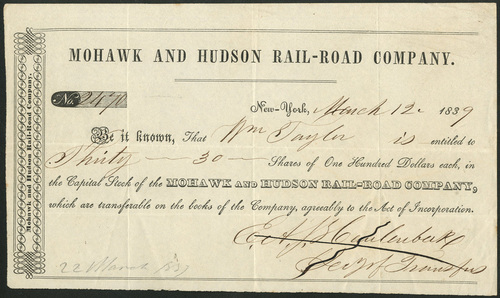 MOHAWK AND HUDSON RAIL-ROAD COMPANY.
No. 2470
New-York, March 12 1839
Be it known, That Wm Taylor is entitled to
Thirty — 30 — Shares of One Hundred Dollars each, in
the Capital Stock of the MOHAWK AND HUDSON RAIL-ROAD COMPANY,
which are transferable on the books of the Company, agreeably to the Act of Incorporation.
of Transfer
22 March
Mohawk and Hudson Rail-Road Company.